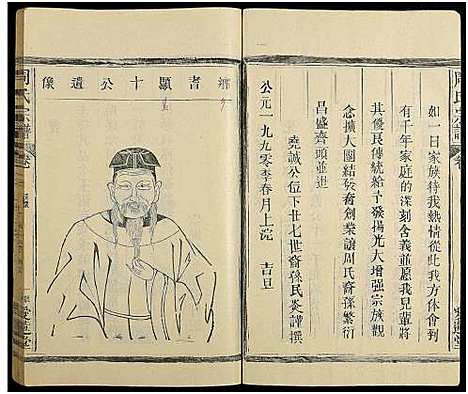 周氏宗譜
如一日家族待我熱情從此我方体會到
有千年家庭的深刻含義並愿我兒輩將
其優良傳統給予發揚光大增强宗族观
念擴大團結發奮創業讓周氏裔孫繁衍
昌盛齊頭並進
堯誠公位下廿七世裔孫民炎謹撰
公元一九九零季春月上浣 吉旦
顯十公遺像
周氏宗譜
卷
愛蓮堂